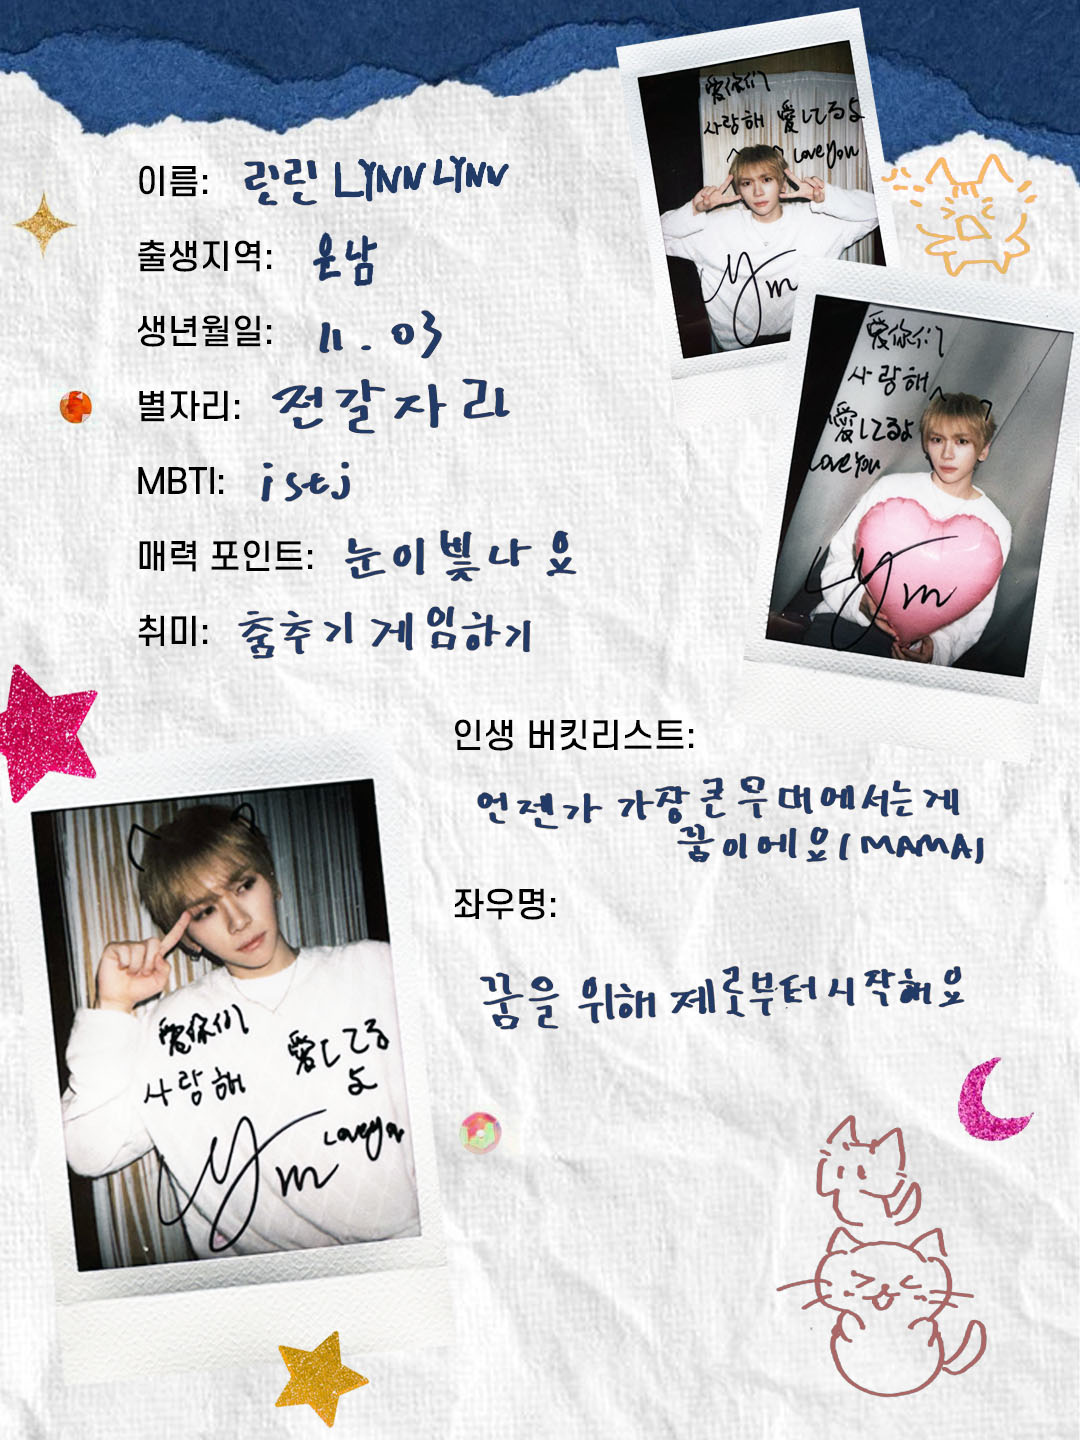 이름: 린린 LYNN LYNN
출생지역: 운남
생년월일: 11.03
별자리: 전갈자리
MBTI: istj
매력 포인트: 눈이 빛나요
취미: 춤추기 게임하기
인생 버킷리스트:
언젠가 가장 큰 무대에서는게
꿈이에요(MAMA)
좌우명:
꿈을 위해 제로부터 시작해요
爱你们
사랑해 愛してるよ
Love You
爱你们
사랑해
愛してるよ
Love You
爱你们
사랑해
愛してる
よ
Love You